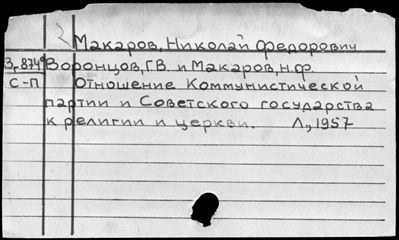 Макаров, Николай Федорович
3,874ᵃ Воронцов, Г.В и Макаров, Н.Ф.
С-П Отношение Коммунистической
партии и Советского государства
к религии и церкви. Л., 1957